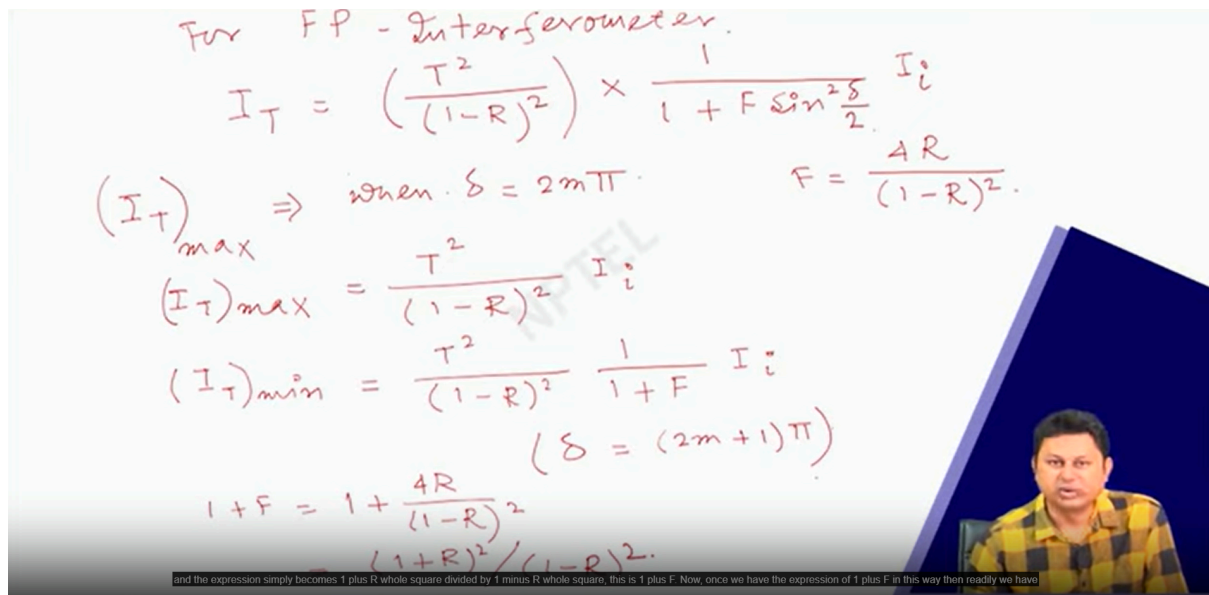 For FP - Interferometer.
I_T = (T^2 / (1-R)^2) × 1 / (1 + F sin^2 δ/2) I_i
(I_T)_max ⇒ when. δ = 2mπ. F = 4R / (1-R)^2.
(I_T)max = T^2 / (1-R)^2 I_i
(I_T)min = T^2 / (1-R)^2 1 / (1+F) I_i
(δ = (2m+1)π)
1+F = 1 + 4R / (1-R)^2
= (1+R)^2/(1-R)^2.
NPTEL
and the expression simply becomes 1 plus R whole square divided by 1 minus R whole square, this is 1 plus F. Now, once we have the expression of 1 plus F in this way then readily we have